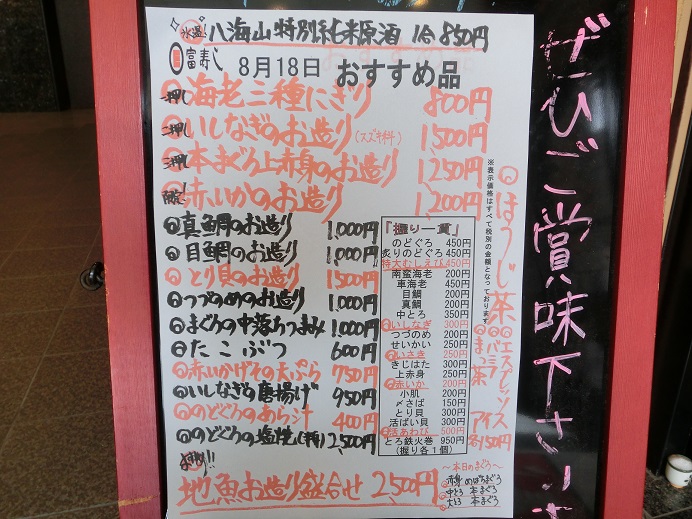 氷温! 八海山特別純米原酒 1合 850円
富寿し 8月18日 おすすめ品
一押し 海老三種にぎり 800円
二押し いしなぎのお造り(スズキ科) 1,500円
三押し 本まぐろ上赤身のお造り 1,250円
赤いかのお造り 1,200円
真鯛のお造り 1,000円
目鯛のお造り 1,000円
とり貝のお造り 1,500円
つづのめのお造り 1,000円
まぐろの中落ちつまみ 1,000円
たこぶつ 600円
赤いかげその天ぷら 750円
いしなぎの唐揚げ 950円
のどぐろのあら汁 400円
のどぐろの塩焼(半削) 2,500円
地魚お造り盛合せ 2,500円
「握り一貫」
のどぐろ 450円
炙りのどぐろ 450円
特大むしえび 450円
南蛮海老 200円
車海老 450円
目鯛 200円
真鯛 200円
中とろ 350円
いしなぎ 300円
つづのめ 200円
せいかい 250円
いさき 250円
きじはた 300円
上赤身 250円
赤いか 200円
小肌 200円
〆さば 150円
とり貝 300円
活ばい貝 300円
活あわび 500円
とろ鉄火巻 950円
(握り各1個)
※表示価格はすべて税別の金額となっております
ほうじ茶
エスプレッソ
バニラ
まっ茶
アイス
各150円
～本日のまぐろ～
赤身 めばちまぐろ
中とろ 本まぐろ
大とろ 本まぐろ
ぜひご賞味下さいませ